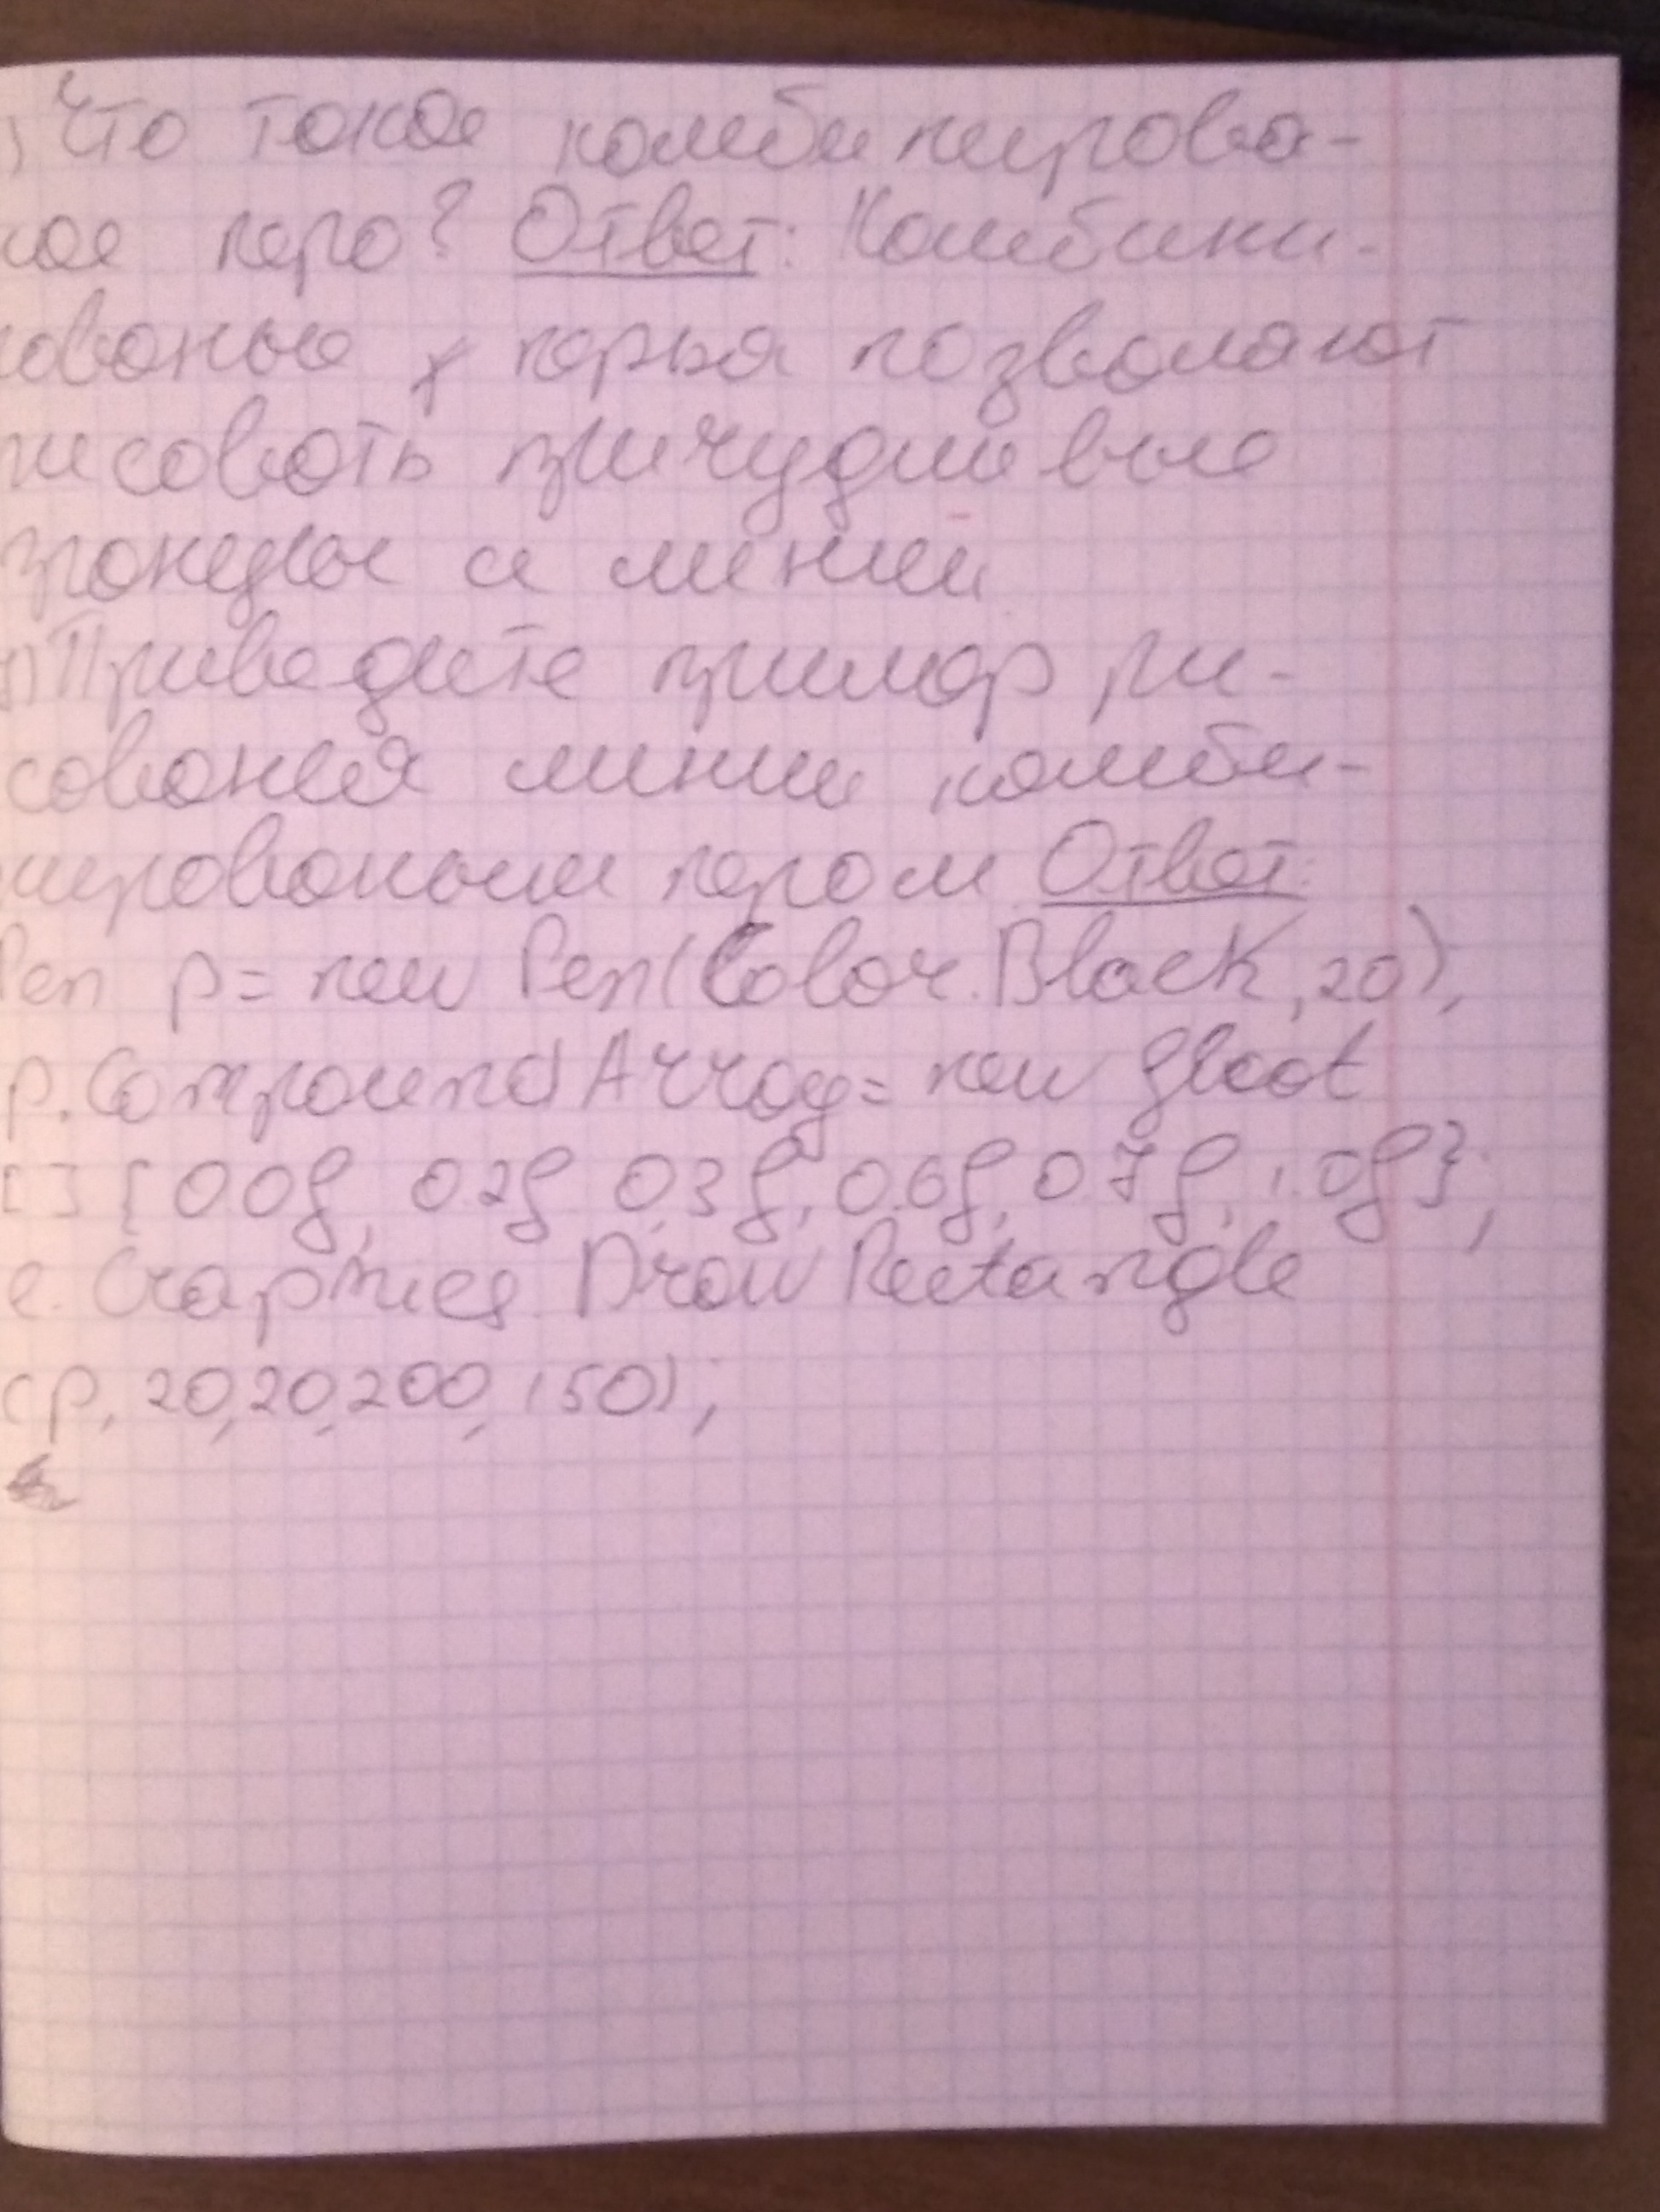 ) Что такое комбинирова-
ное перо? Ответ: Комбини-
рованые перья позволяют
рисовать причудливые
границы и линии
) Приведите пример ри-
сования линии комби-
нированым пером Ответ:
Pen p = new Pen(Color.Black, 20);
p.CompoundArray = new float
[] {0.0f, 0.2f, 0.3f, 0.6f, 0.7f, 1.0f};
e.Graphics DrawRectangle
(p, 20, 20, 200, 150);